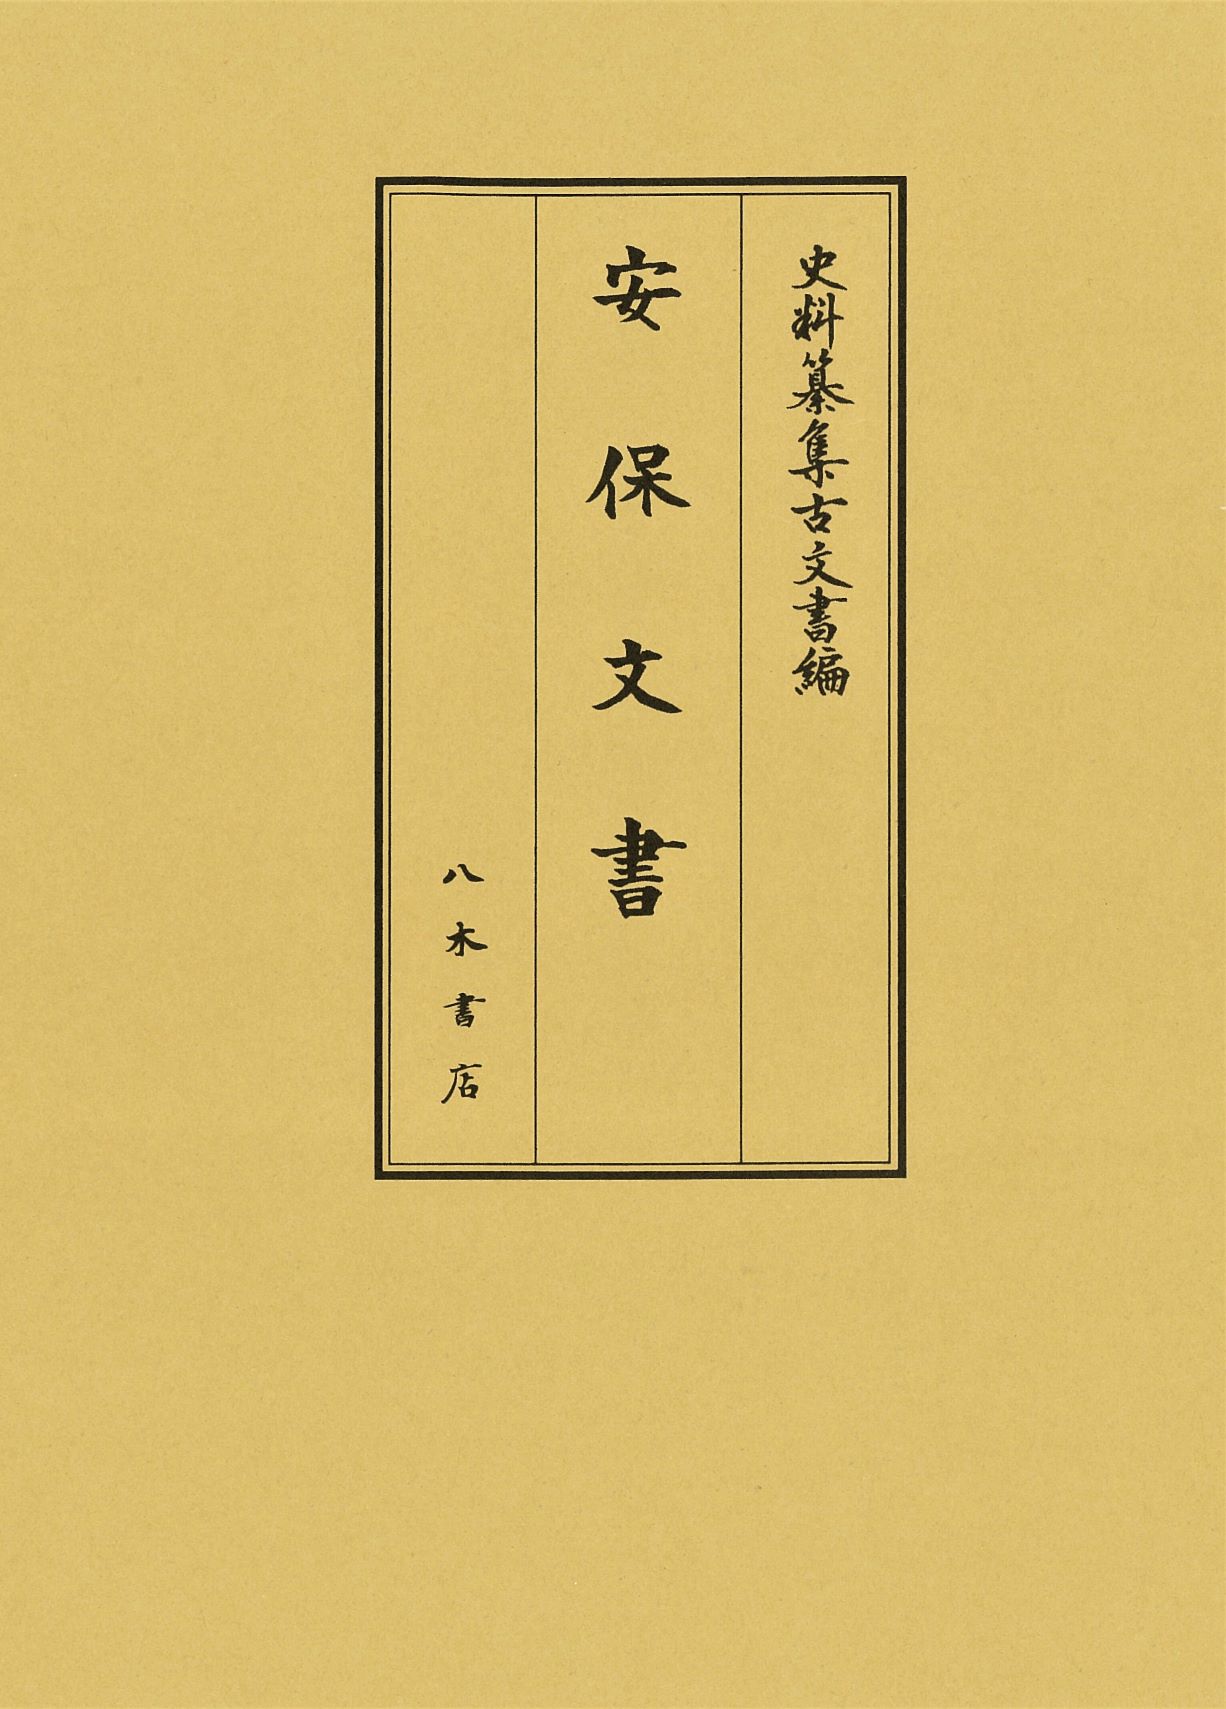 史料纂集古文書編
安保文書
八木書店